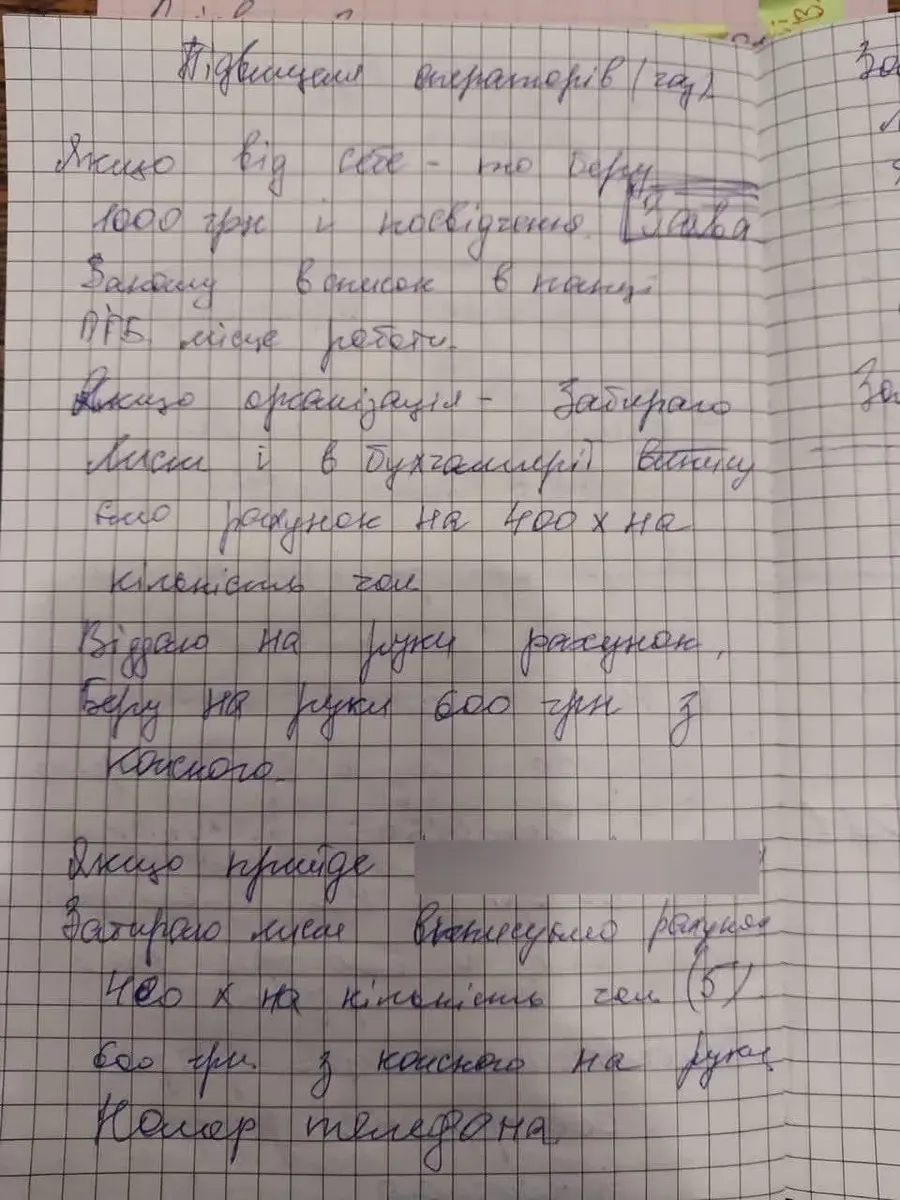 Підвищення операторів (газ)
Якщо від себе - то беру
1000 грн і посвідчення. Заява
Заношу в список в папці
ПІБ, місце роботи.
Якщо організація - Забираю
Лист і в бухгалтерії випису
ємо рахунок на 400 х на
кількість чол
Віддаю на руки рахунок,
Беру на руки 600 грн з
кожного.
Якщо прийде
Забираю лист виписуємо рахунок
400 х на кількість чол (5)
600 грн. з кожного на руки
Номер телефона
За
За